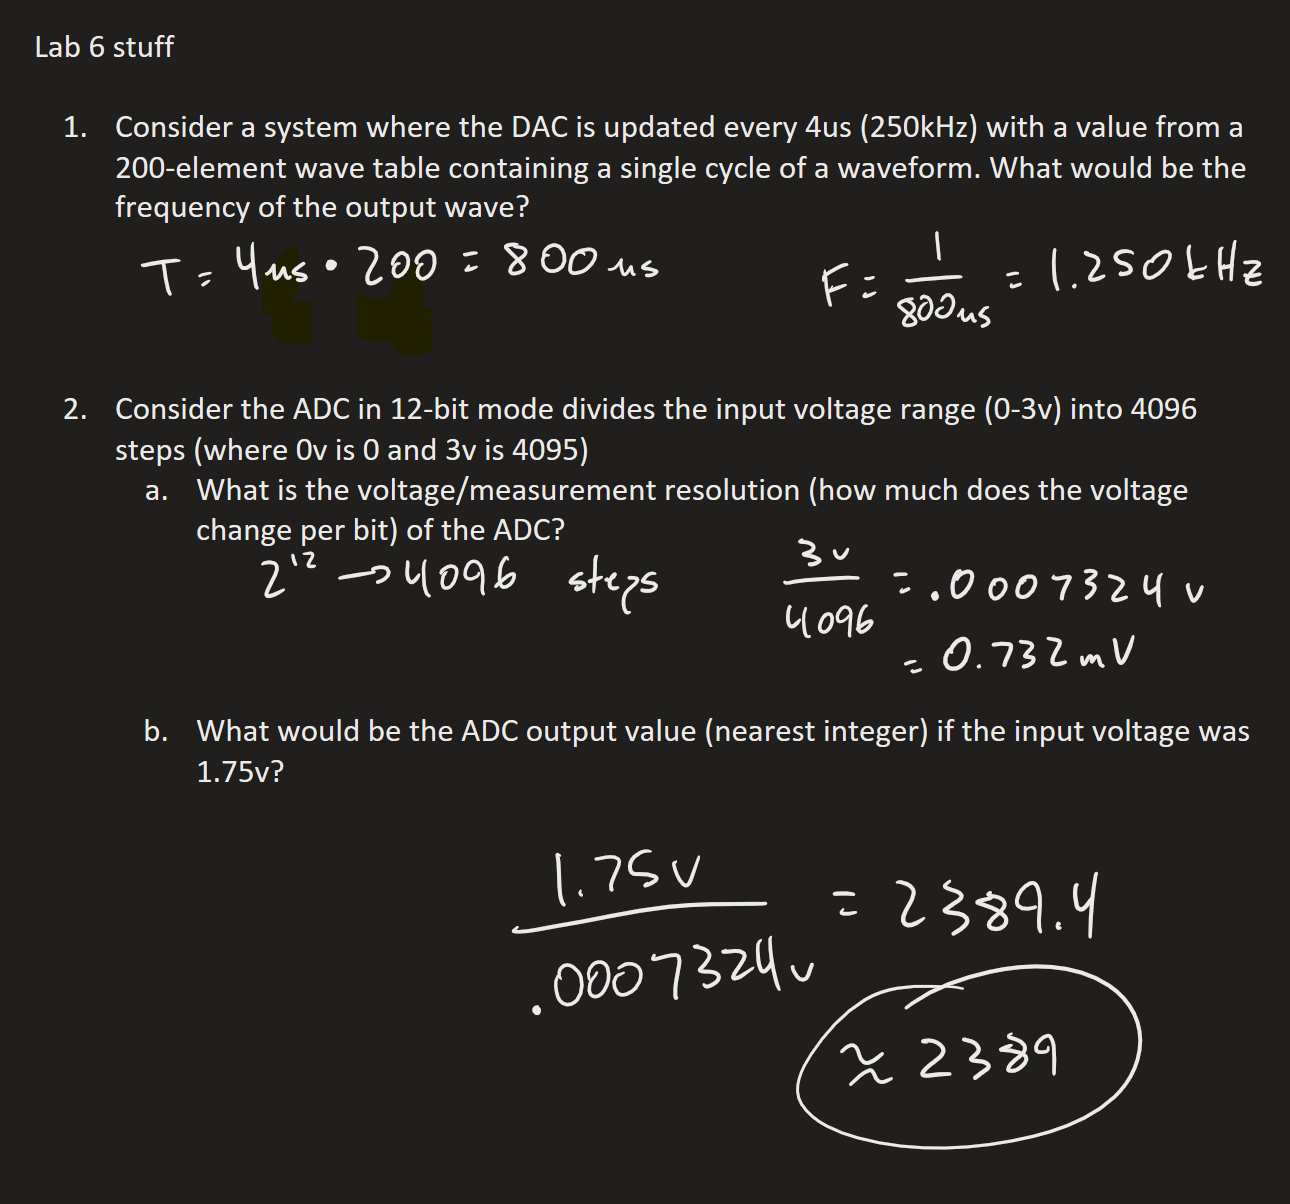 Lab 6 stuff
1. Consider a system where the DAC is updated every 4us (250kHz) with a value from a
200-element wave table containing a single cycle of a waveform. What would be the
frequency of the output wave?
T = 4us • 200 = 800us F = 1/800us = 1.250kHz
2. Consider the ADC in 12-bit mode divides the input voltage range (0-3v) into 4096
steps (where 0v is 0 and 3v is 4095)
a. What is the voltage/measurement resolution (how much does the voltage
change per bit) of the ADC?
2¹² → 4096 steps 3v/4096 = .0007324v
= 0.732mV
b. What would be the ADC output value (nearest integer) if the input voltage was
1.75v?
1.75v/.0007324v = 2389.4
≈ 2389